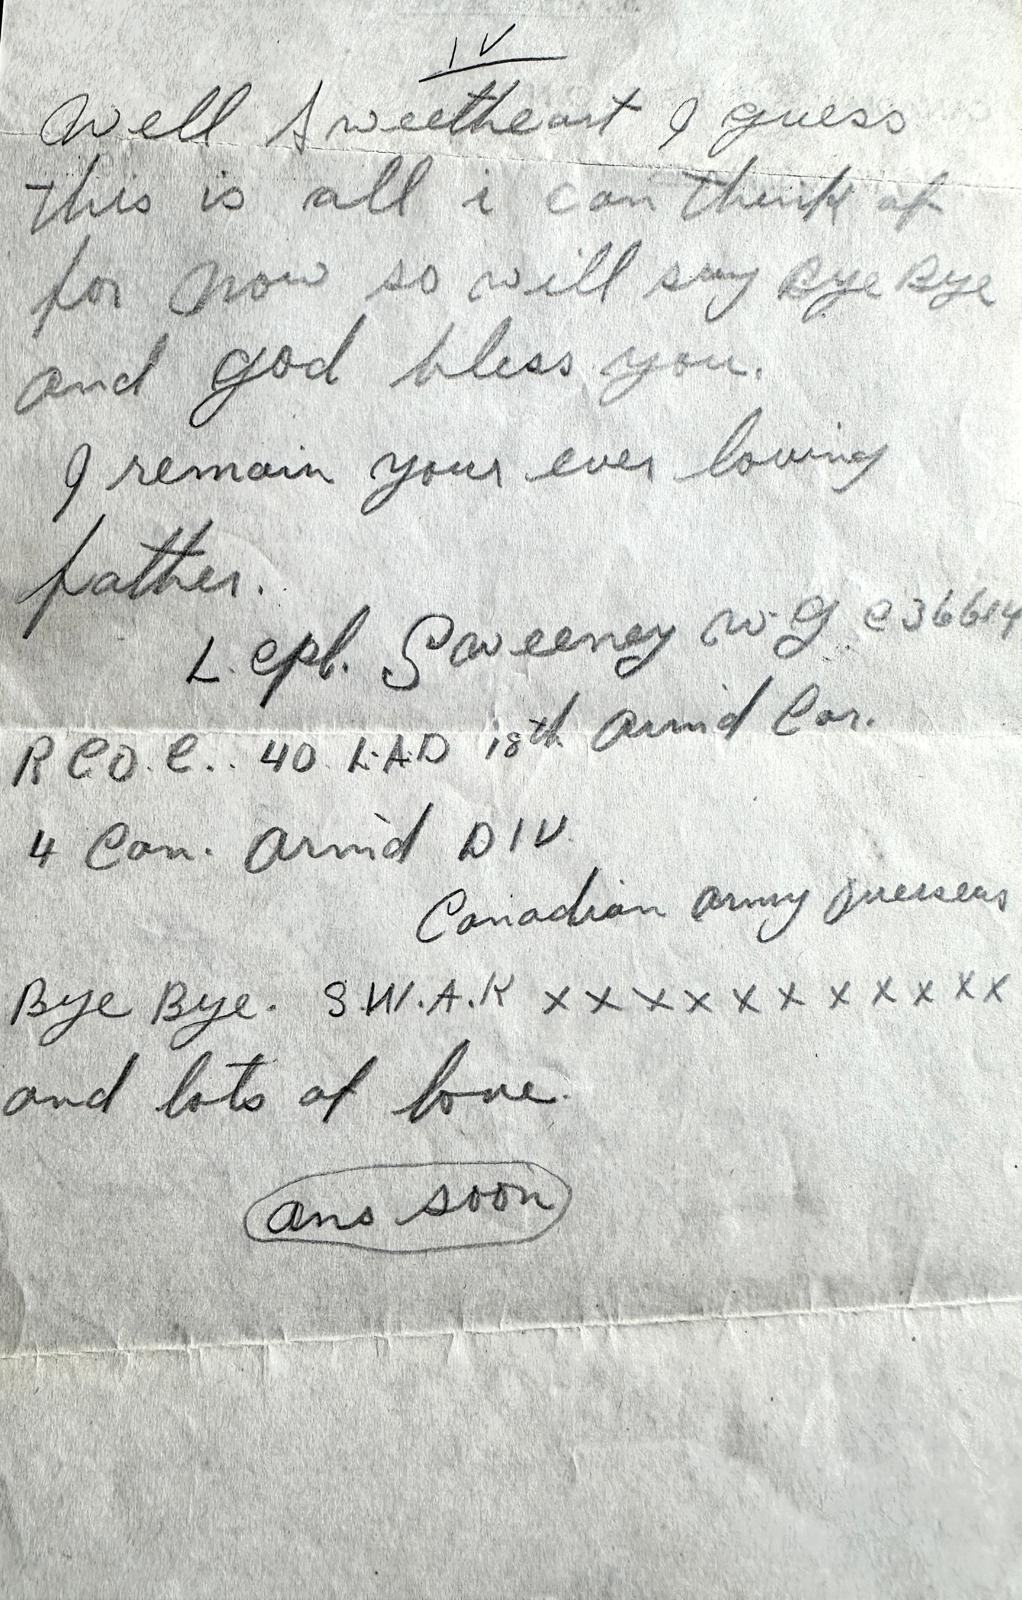 IV
Well Sweetheart I guess
this is all i can think of
for now so will say Bye Bye
and god bless you.
I remain your ever loving
father.
L. cpl. Sweeney W. G C36614
R C.O.C.. 40 L.A.D 18th Arm'd Car.
4 Can. Arm'd DIV.
Canadian Army Overseas
Bye Bye. S.W.A.K x x x x x x x x x x x
and lots of love.
ans soon